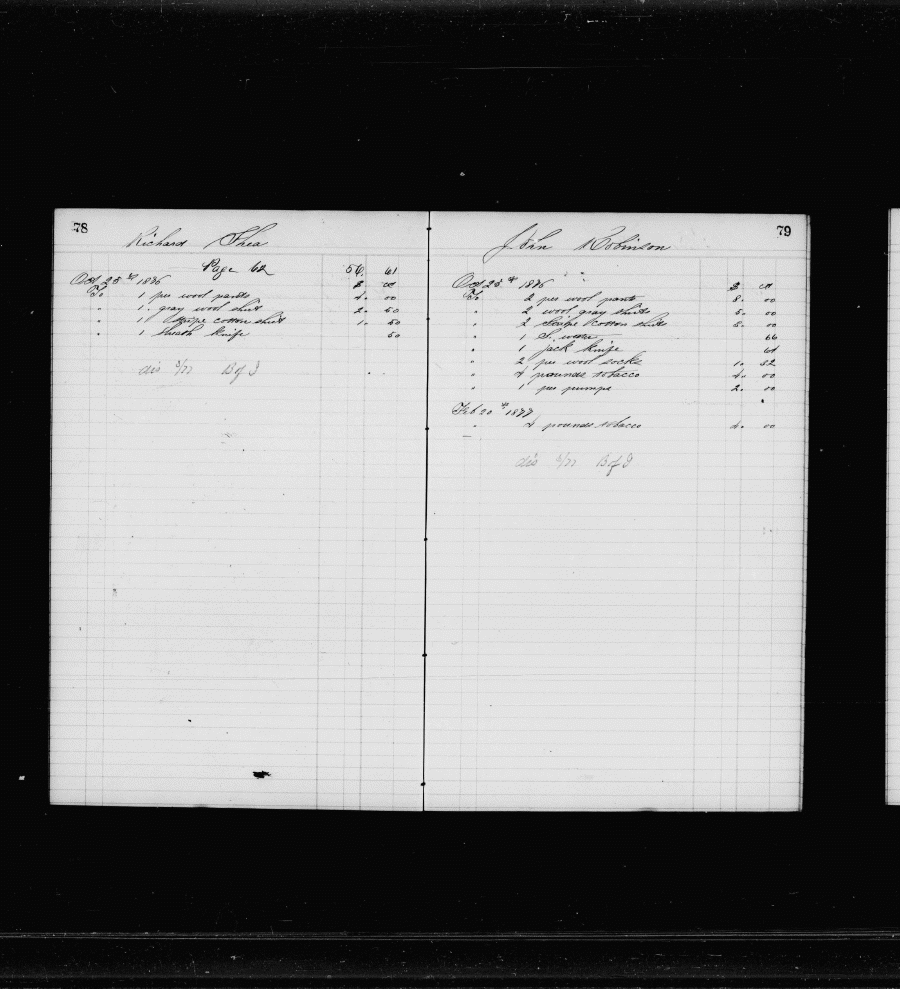 78
Richard Shea
Page 62 56. 61
Oct 25th 1876 $ ct
To 1 per wool pants 4. 00
" 1 gray wool shirt 2. 50
" 1 Stripe cotton shirt 1. 50
" 1 sheath knife 50
dis 3/77 B of I
79
John Robinson
Oct 25th 1876 $ ct
To 2 per wool pants 8. 00
" 2 wool gray shirts 5. 00
" 2 Stripe cotton shirts 3. 00
" 1 66
" 1 jack knife
" 2 per wool socks 1. 32
" 4 pounds tobacco 4. 00
" 1 per pumps 2. 00
Feb 20th 1877
" 4 pounds tobacco 4. 00
dis 3/77 B of I